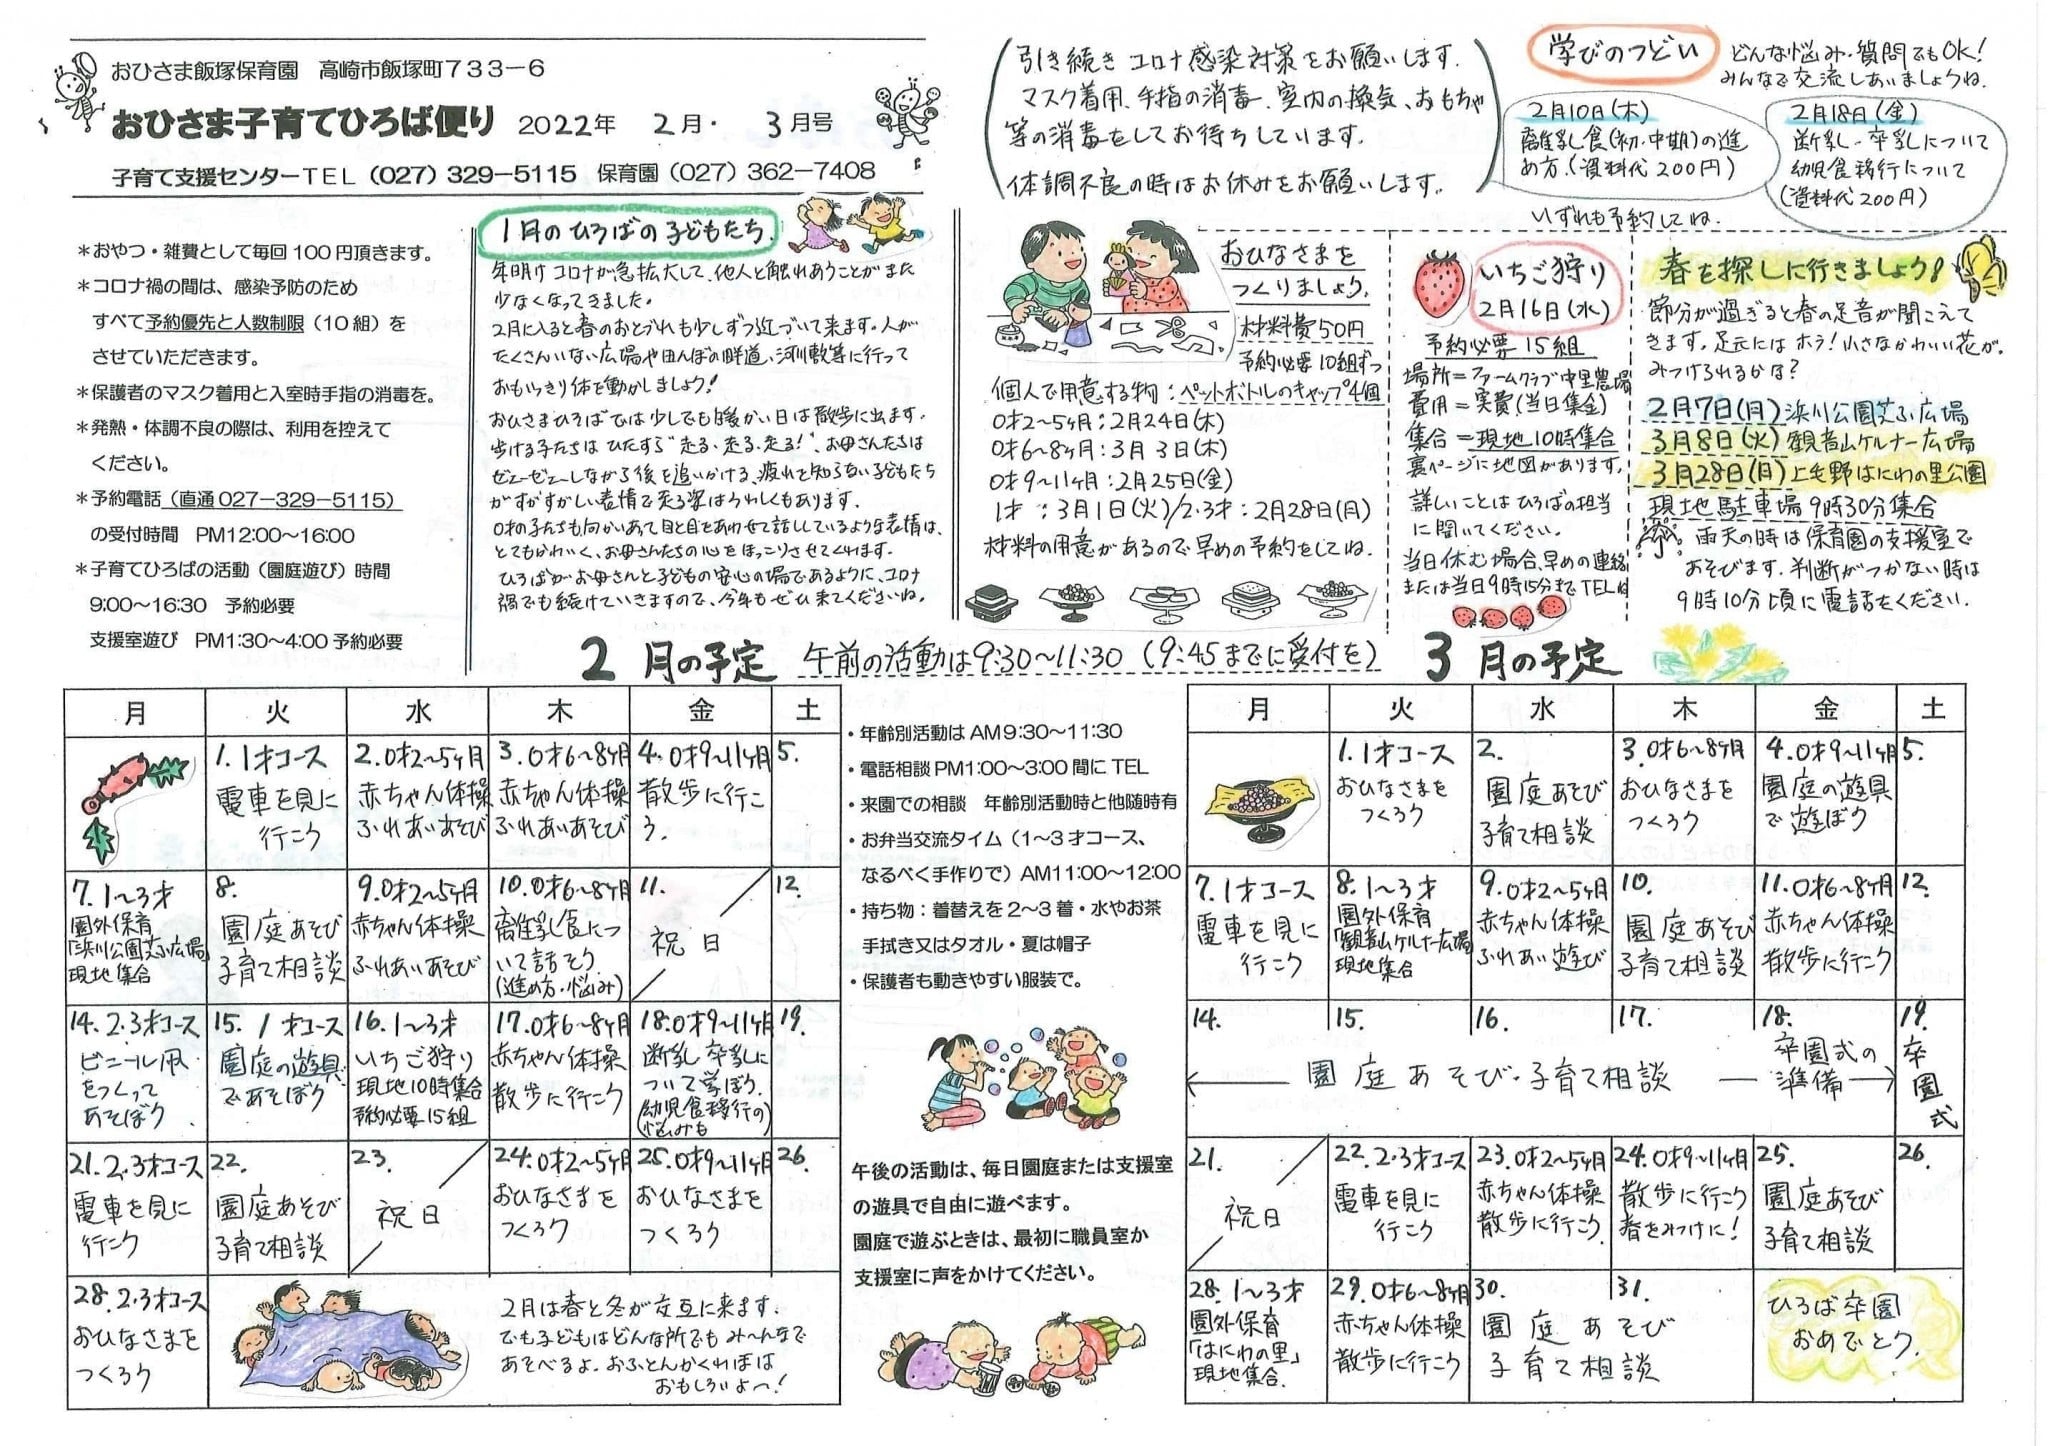 おひさま飯塚保育園　高崎市飯塚町７３３－６
おひさま子育てひろば便り　2022年　2月・　3月号
子育て支援センターＴＥＬ（027）329－5115　保育園（027）362－7408
＊おやつ・雑費として毎回100円頂きます。
＊コロナ禍の間は、感染予防のため
すべて予約優先と人数制限（10組）を
させていただきます。
＊保護者のマスク着用と入室時手指の消毒を。
＊発熱・体調不良の際は、利用を控えて
ください。
＊予約電話（直通027－329－5115）
の受付時間　PM12:00～16:00
＊子育てひろばの活動（園庭遊び）時間
9:00～16:30　予約必要
支援室遊び　PM1:30～4:00予約必要
1月のひろばの子どもたち
年明けコロナが急拡大して、他人と触れあうことがまた
少なくなってきました。
2月に入ると春のおとづれも少しずつ近づいて来ます。人が
たくさんいない広場や田んぼの畔道、河川敷等に行って
おもいっきり体を動かしましょう!
おひさまひろばでは少しでも暖かい日は散歩に出ます。
歩ける子たちはひたすら"走る、走る、走る!"、お母さんたちは
ゼェーゼェーしながら後を追いかける、疲れを知らない子どもたち
がすがすがしい表情で走る姿はうれしくもあります。
0才の子たちも向かいあって目と目をあわせて話ししているような表情は、
とてもかわいく、お母さんたちの心をほっこりさせてくれます。
ひろばがお母さんと子どもの安心の場であるように、コロナ
禍でも続けていきますので、今年もぜひ来てくださいね。
引き続きコロナ感染対策をお願いします。
マスク着用、手指の消毒、室内の換気、おもちゃ
等の消毒をしてお待ちしています。
体調不良の時はお休みをお願いします。
学びのつどい
どんな悩み・質問でもOK!
みんなで交流しあいましょうね。
2月10日(木)
離乳食(初・中期)の進
め方。(資料代200円)
2月18日(金)
断乳・卒乳について
幼児食移行について
(資料代200円)
いずれも予約してね。
おひなさまを
つくりましょう。
材料費50円
予約必要10組ずつ
個人で用意する物：ペットボトルのキャップ4個
0才2～5ヶ月：2月24日(木)
0才6～8ヶ月：3月3日(木)
0才9～11ヶ月：2月25日(金)
1才：3月1日(火)/2・3才：2月28日(月)
材料の用意があるので早めの予約をしてね。
いちご狩り
2月16日(水)
予約必要15組
場所＝ファームクラブ中里農場
費用＝実費(当日集金)
集合＝現地10時集合
裏ページに地図があります。
詳しいことはひろばの担当
に聞いてください。
当日休む場合、早めの連絡
または当日9時15分までTELね
春を探しに行きましょう!
節分が過ぎると春の足音が聞こえて
きます。足元にはホラ!小さなかわいい花が。
みつけられるかな?
2月7日(月)浜川公園芝ふ広場
3月8日(火)観音山ケルナー広場
3月28日(月)上毛野はにわの里公園
現地駐車場9時30分集合
雨天の時は保育園の支援室で
あそびます。判断がつかない時は
9時10分頃に電話をください。
2月の予定　午前の活動は9:30～11:30（9:45までに受付を）　3月の予定
月　火　水　木　金　土
1. 1才コース　2. 0才2～5ヶ月　3. 0才6～8ヶ月　4. 0才9～11ヶ月　5.
電車を見に　赤ちゃん体操　赤ちゃん体操　散歩に行こ
行こう　ふれあいあそび　ふれあいあそび　う。
7. 1～3才　8.　9. 0才2～5ヶ月　10. 0才6～8ヶ月　11.　12.
園外保育　園庭あそび　赤ちゃん体操　離乳食につ　祝日
「浜川公園芝ふ広場」　子育て相談　ふれあいあそび　いて話そう
現地集合　(進め方・悩み)
14. 2・3才コース　15. 1才コース　16. 1～3才　17. 0才6～8ヶ月　18. 0才9～11ヶ月　19.
ビニール凧　園庭の遊具　いちご狩り　赤ちゃん体操　断乳 卒乳に
をつくって　であそぼう　現地10時集合　散歩に行こう　ついて学ぼう。
あそぼう。　予約必要15組　(幼児食移行の
悩みも)
21. 2・3才コース　22.　23.　24. 0才2～5ヶ月　25. 0才9～11ヶ月　26.
電車を見に　園庭あそび　祝日　おひなさまを　おひなさまを
行こう　子育て相談　つくろう　つくろう
28. 2・3才コース
おひなさまを
つくろう
2月は春と冬が交互に来ます。
でも子どもはどんな所でもみ～んなで
あそべるよ。おふとんかくれほは
おもしろいよ～!
・年齢別活動はAM9:30～11:30
・電話相談PM1:00～3:00間にTEL
・来園での相談　年齢別活動時と他随時有
・お弁当交流タイム（1～3才コース、
なるべく手作りで）AM11:00～12:00
・持ち物：着替えを2～3着・水やお茶
手拭き又はタオル・夏は帽子
・保護者も動きやすい服装で。
午後の活動は、毎日園庭または支援室
の遊具で自由に遊べます。
園庭で遊ぶときは、最初に職員室か
支援室に声をかけてください。
月　火　水　木　金　土
1. 1才コース　2.　3. 0才6～8ヶ月　4. 0才9～11ヶ月　5.
おひなさまを　園庭あそび　おひなさまを　園庭の遊具
つくろう　子育て相談　つくろう　で遊ぼう
7. 1才コース　8. 1～3才　9. 0才2～5ヶ月　10.　11. 0才6～8ヶ月　12.
電車を見に　園外保育　赤ちゃん体操　園庭あそび　赤ちゃん体操
行こう　「観音山ケルナー広場」　ふれあい遊び　子育て相談　散歩に行こう
現地集合
14.　15.　16.　17.　18.　19.
園庭あそび・子育て相談　卒園式の準備　卒園式
21.　22. 2・3才コース　23. 0才2～5ヶ月　24. 0才9～11ヶ月　25.　26.
祝日　電車を見に　赤ちゃん体操　散歩に行こう　園庭あそび
行こう　散歩に行こう。　春をみつけに!　子育て相談
28. 1～3才　29. 0才6～8ヶ月　30.　31.
園外保育　赤ちゃん体操　園庭あそび　ひろば卒園
「はにわの里」　散歩に行こう　子育て相談　おめでとう。
現地集合.